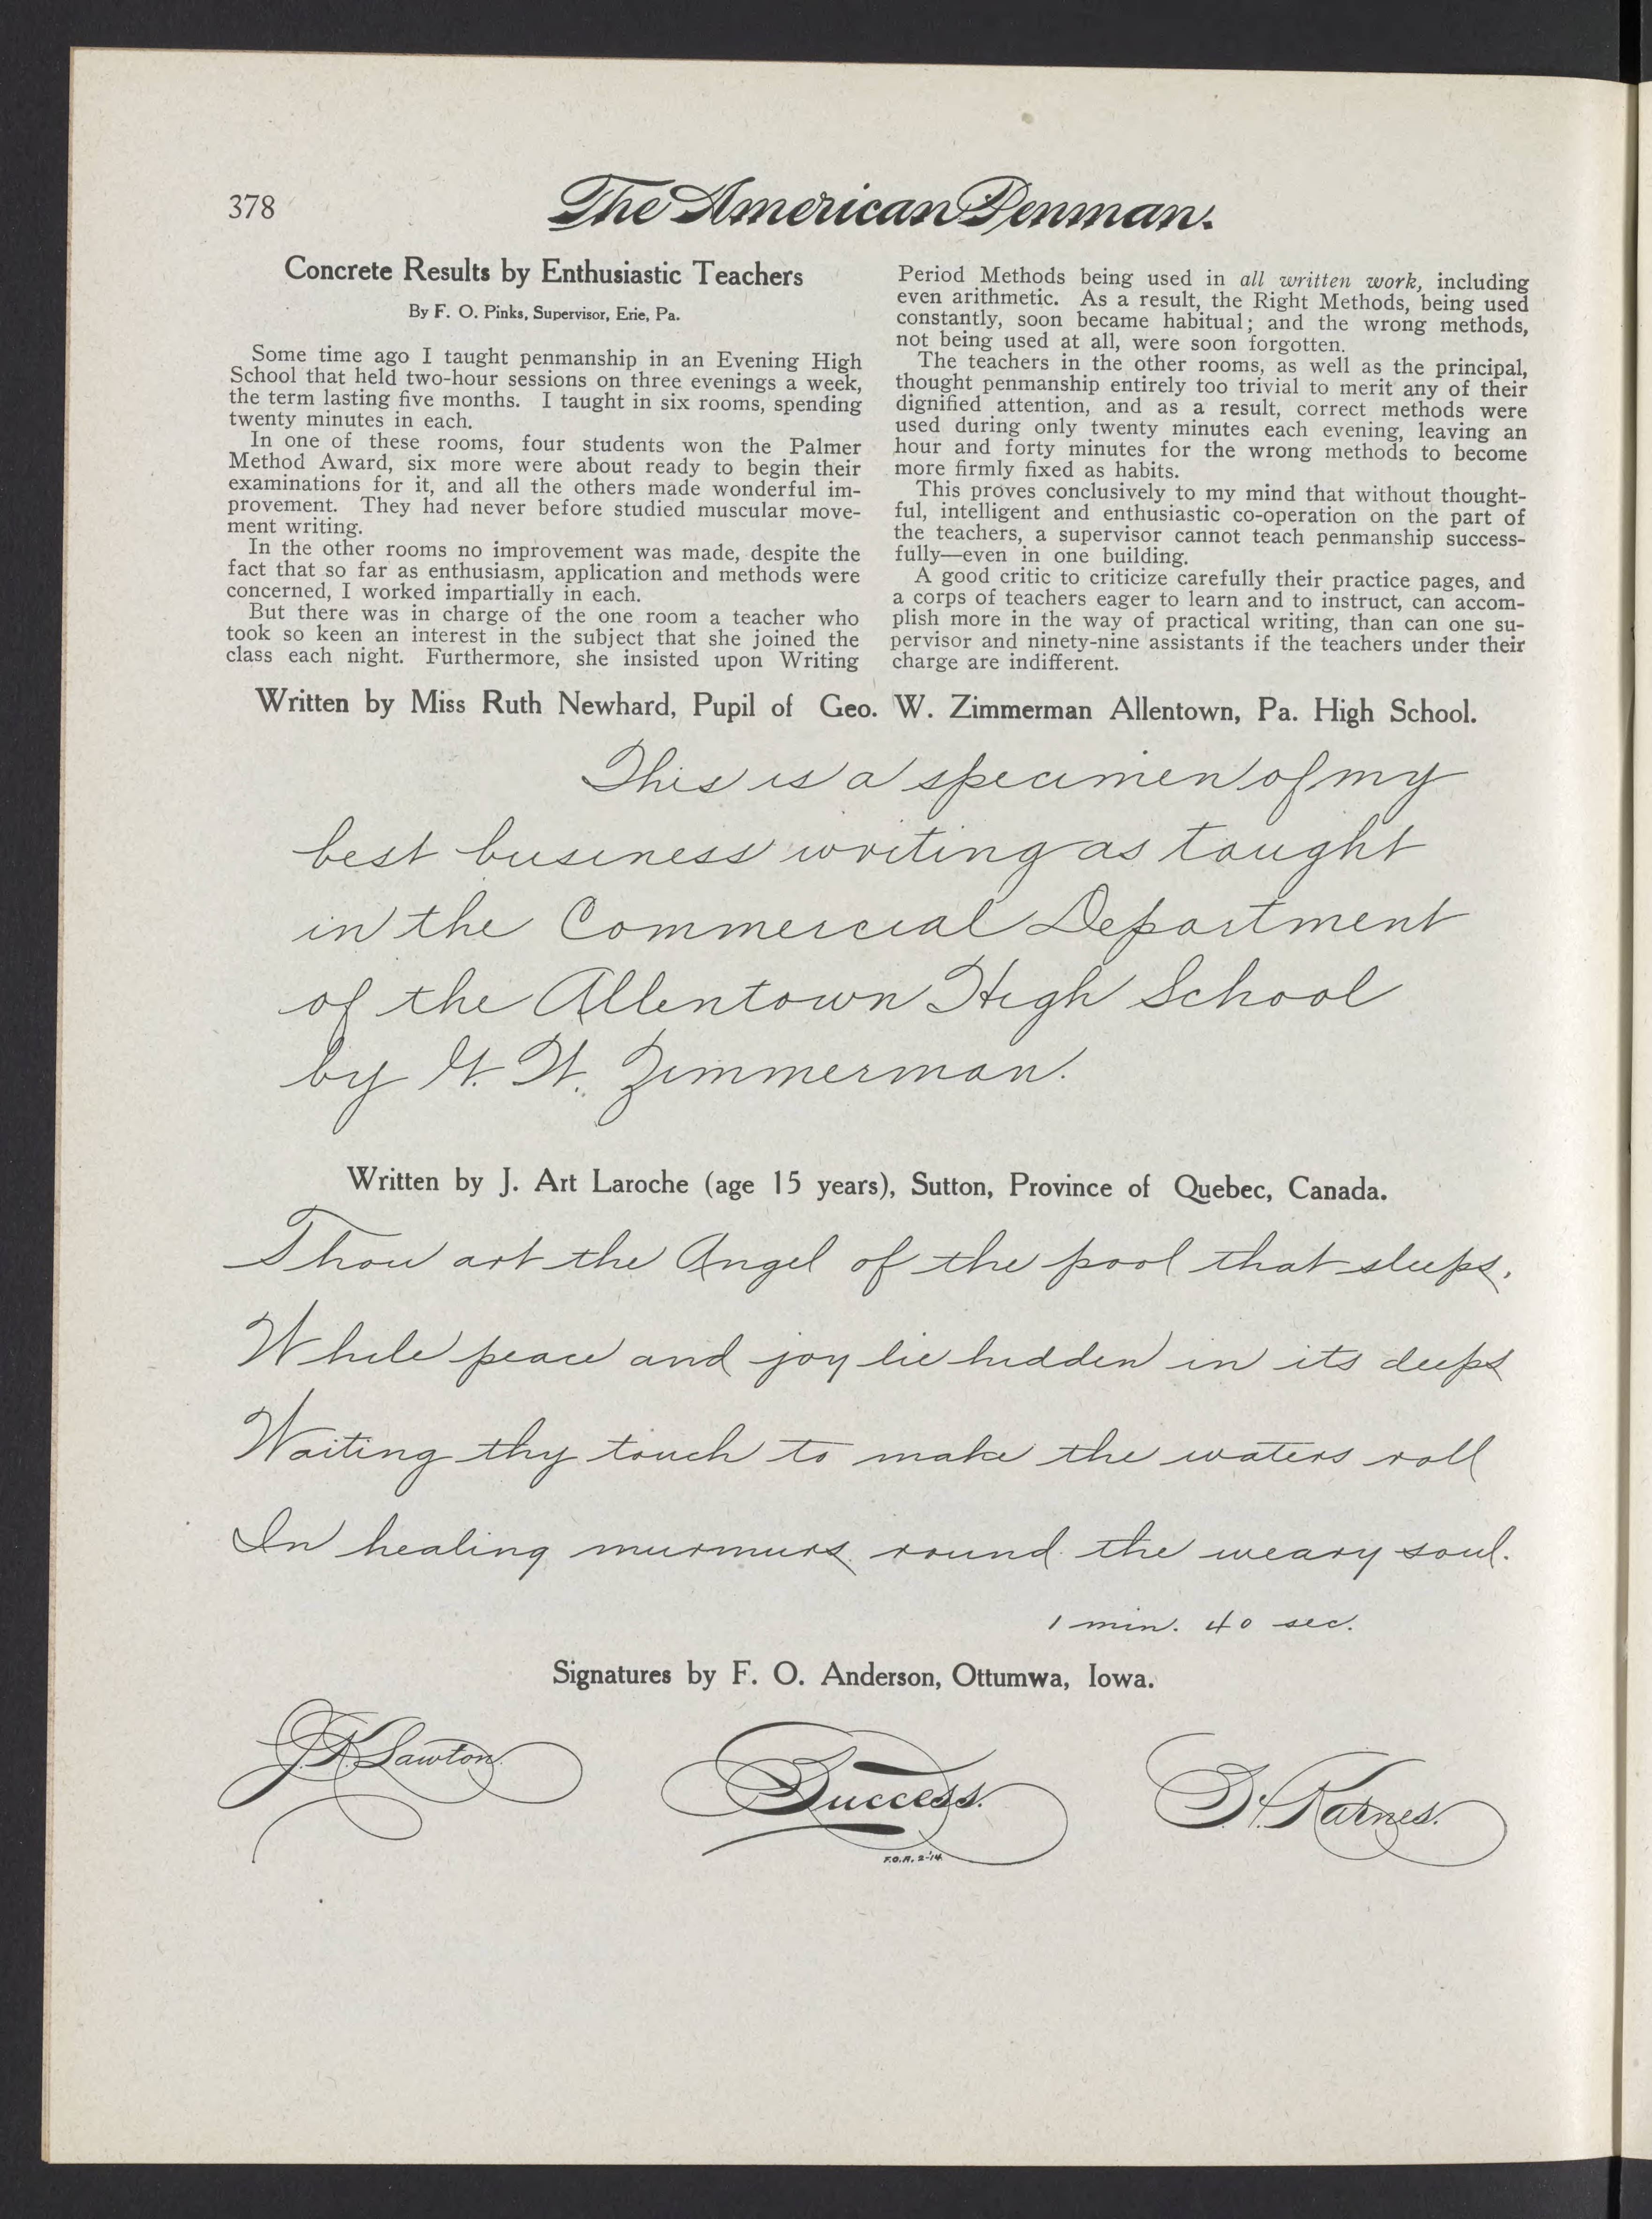 378
The American Penman.
Concrete Results by Enthusiastic Teachers
By F. O. Pinks, Supervisor, Erie, Pa.
Some time ago I taught penmanship in an Evening High
School that held two-hour sessions on three evenings a week,
the term lasting five months. I taught in six rooms, spending
twenty minutes in each.
In one of these rooms, four students won the Palmer
Method Award, six more were about ready to begin their
examinations for it, and all the others made wonderful im-
provement. They had never before studied muscular move-
ment writing.
In the other rooms no improvement was made, despite the
fact that so far as enthusiasm, application and methods were
concerned, I worked impartially in each.
But there was in charge of the one room a teacher who
took so keen an interest in the subject that she joined the
class each night. Furthermore, she insisted upon Writing
Period Methods being used in all written work, including
even arithmetic. As a result, the Right Methods, being used
constantly, soon became habitual; and the wrong methods,
not being used at all, were soon forgotten.
The teachers in the other rooms, as well as the principal,
thought penmanship entirely too trivial to merit any of their
dignified attention, and as a result, correct methods were
used during only twenty minutes each evening, leaving an
hour and forty minutes for the wrong methods to become
more firmly fixed as habits.
This proves conclusively to my mind that without thought-
ful, intelligent and enthusiastic co-operation on the part of
the teachers, a supervisor cannot teach penmanship success-
fully—even in one building.
A good critic to criticize carefully their practice pages, and
a corps of teachers eager to learn and to instruct, can accom-
plish more in the way of practical writing, than can one su-
pervisor and ninety-nine assistants if the teachers under their
charge are indifferent.
Written by Miss Ruth Newhard, Pupil of Geo. W. Zimmerman Allentown, Pa. High School.
This is a specimen of my
best business writing as taught
in the Commercial Department
of the Allentown High School
by G. W. Zimmerman.
Written by J. Art Laroche (age 15 years), Sutton, Province of Quebec, Canada.
Thou art the Angel of the pool that sleeps,
While peace and joy lie hidden in its deeps
Waiting thy touch to make the waters roll
In healing murmurs round the weary soul.
1 min. 40 sec.
Signatures by F. O. Anderson, Ottumwa, Iowa.
J. K. Lawton.
Success.
F.O.A. 2-'14
S. H. Karnes.